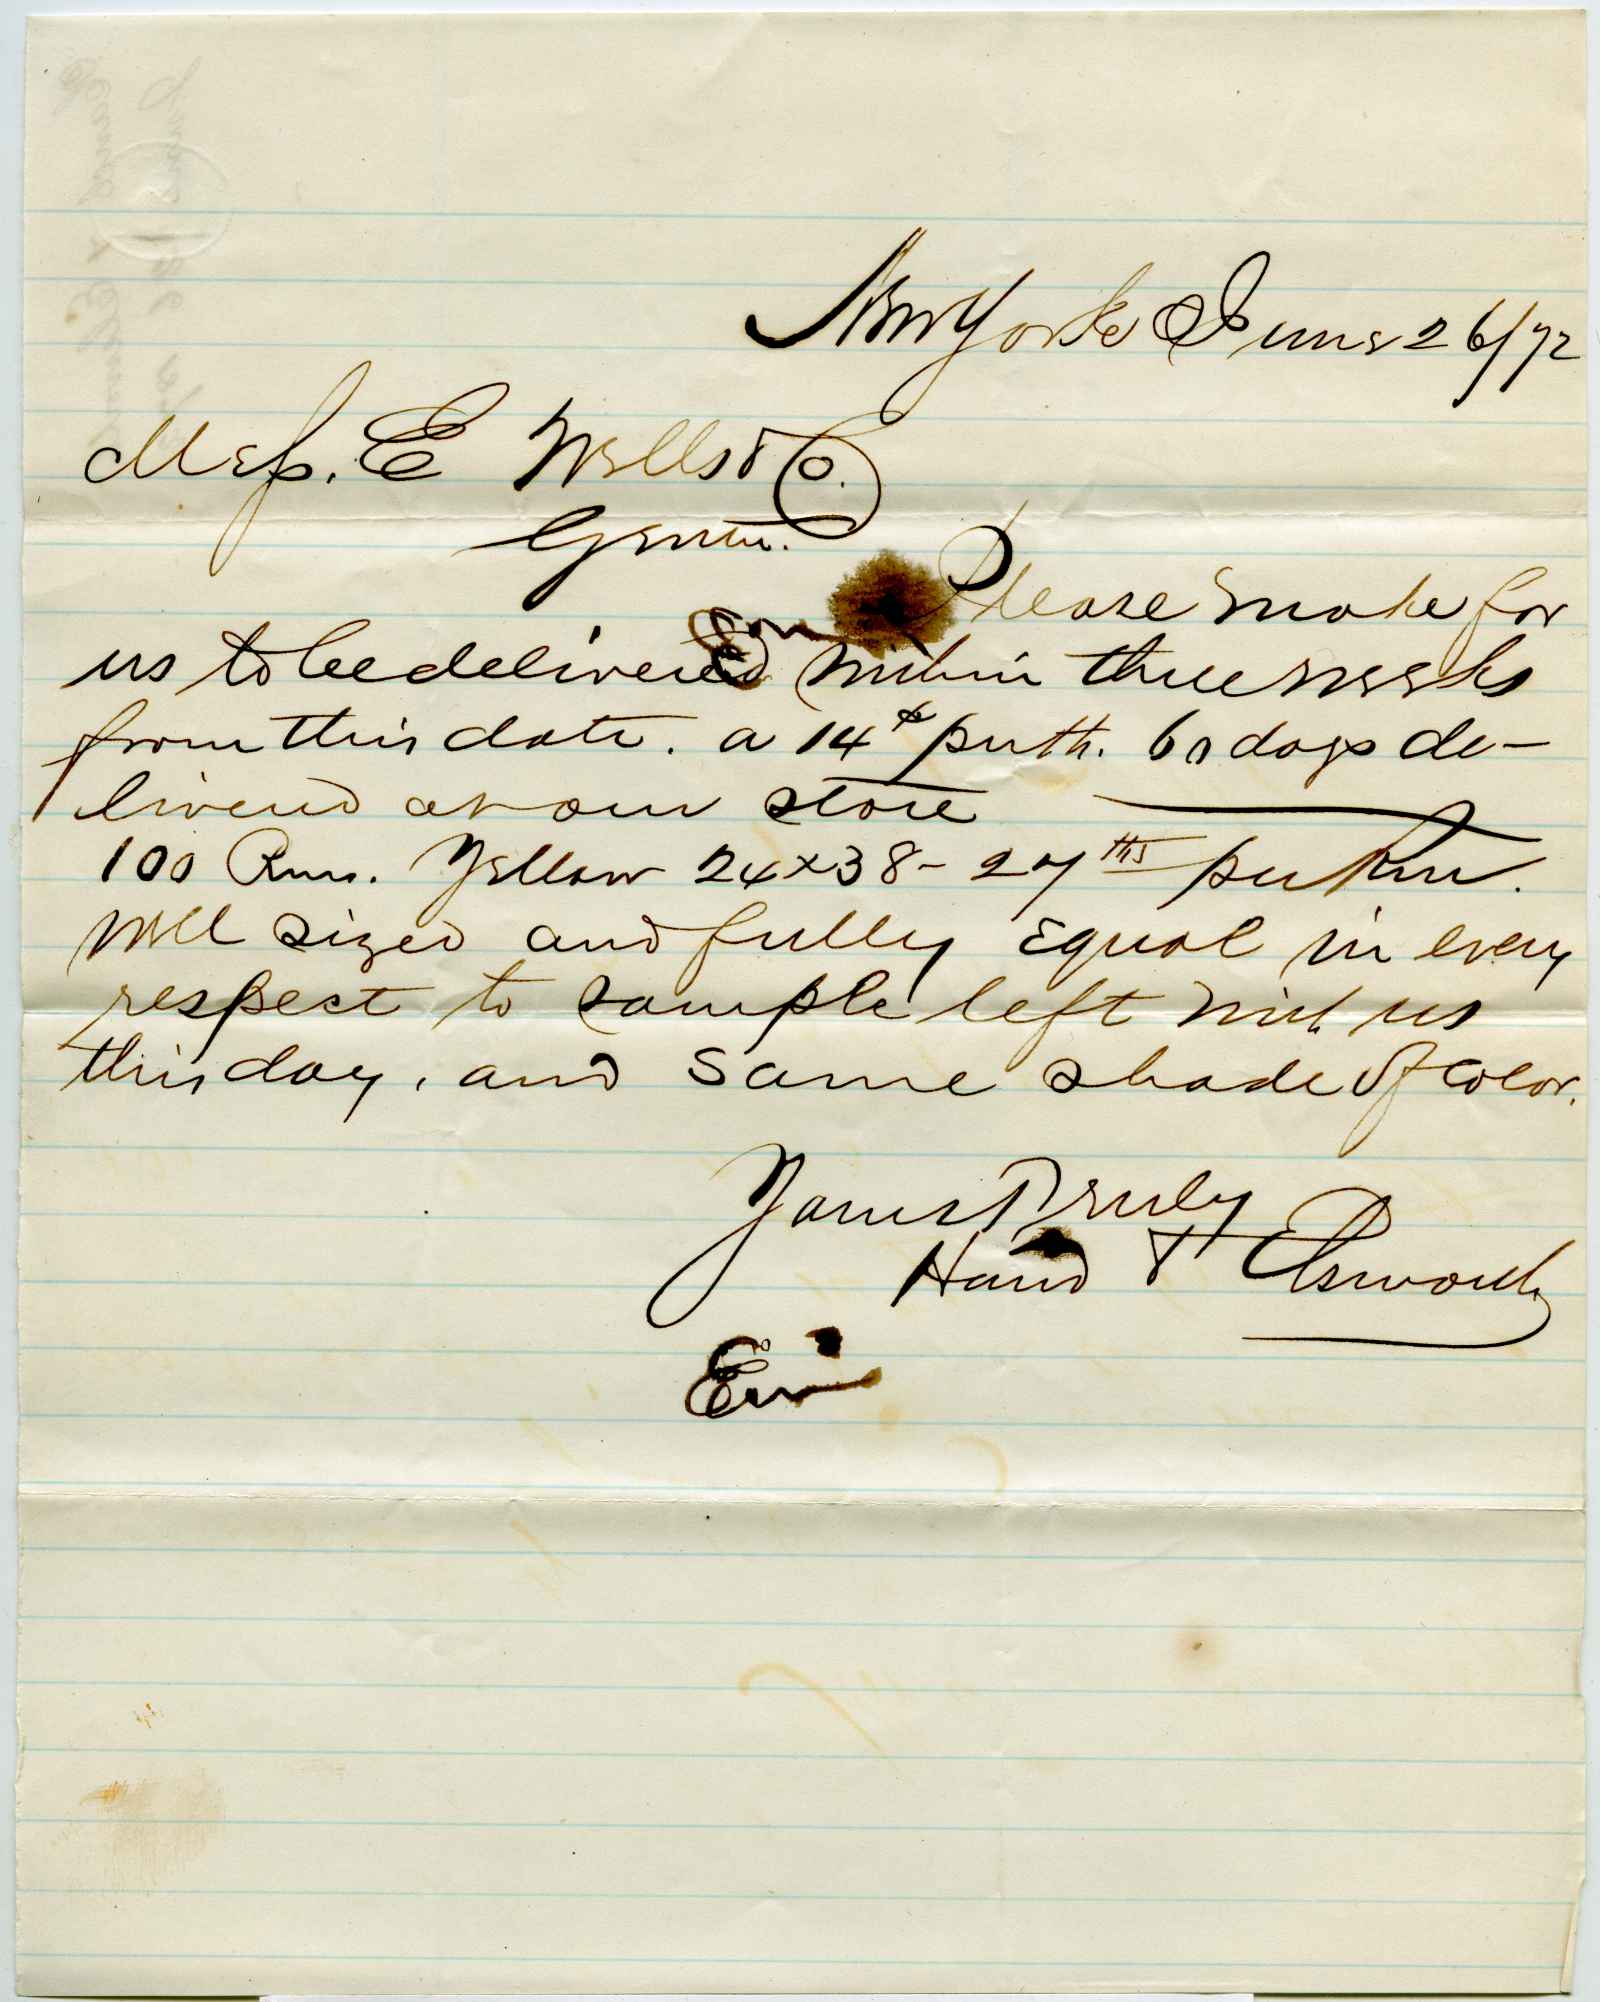 New York June 26/72
Mess. E Wells & Co.
Gentn.
Please make for
us to be delivered within three weeks
from this date. a 14¢ per lb. 60 days de-
livered at our store
100 Rms. Yellow 24x38 - 27 lbs per Rm.
Well sized and fully equal in every
respect to sample left with us
this day, and same shade of color.
Yours Truly
Hand & Elsworth